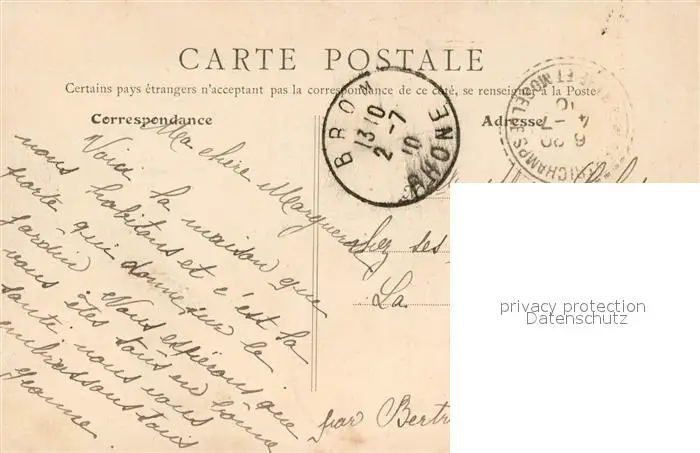 CARTE POSTALE
Certains pays étrangers n'acceptant pas la correspondance de ce côté, se renseigner à la Poste
Correspondance
Adresse
BRON
13 10
2 -7
10
RHONE
Ma chère Marguerite
Voici la maison que
nous habitons et c'est la
porte qui donne sur le
jardin Nous espérons que
vous êtes tous en bonne
santé nous vous
embrassons tous
Jeanne.
chez ses
La
par Bertr
privacy protection
Datenschutz